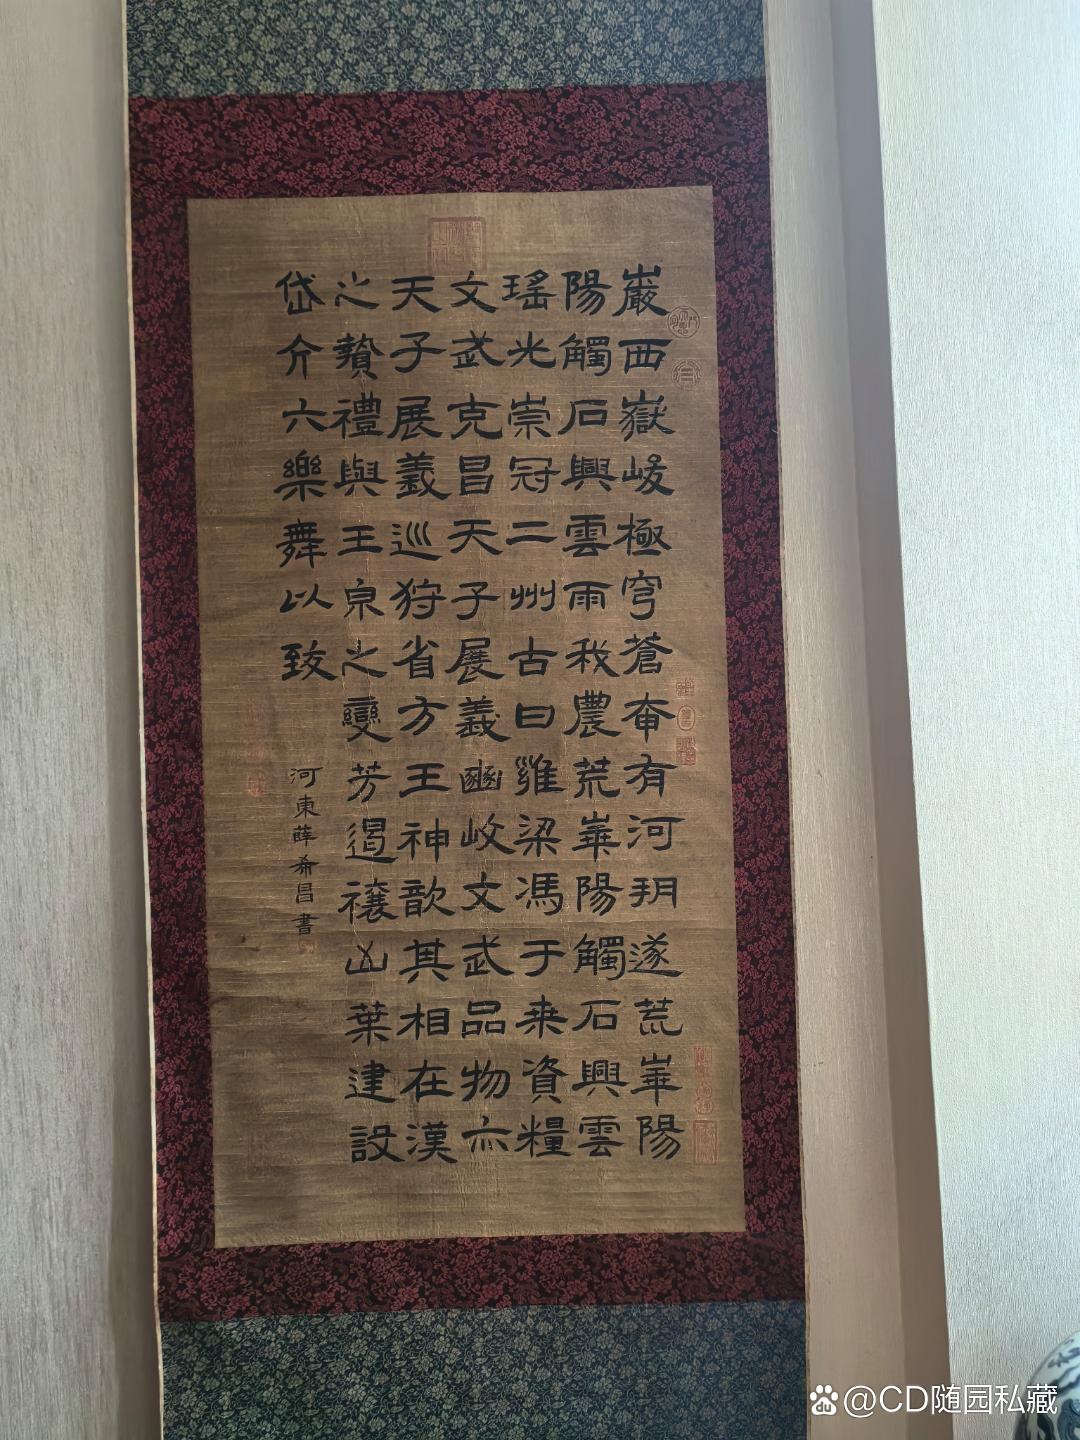 巖西嶽峻極穹蒼奄有河朔遂荒華陽
陽觸石興雲雨我農荒華陽觸石興雲
瑤光崇冠二州古曰雍梁馮于来資糧
文武克昌天子展義豳岐文武品物亦
天子展義巡狩省方王神歆其相在漢
之贄禮與王帛之變芳遏禳凶葉建設
岱介六樂舞以致
河東薛希昌書
@CD随园私藏